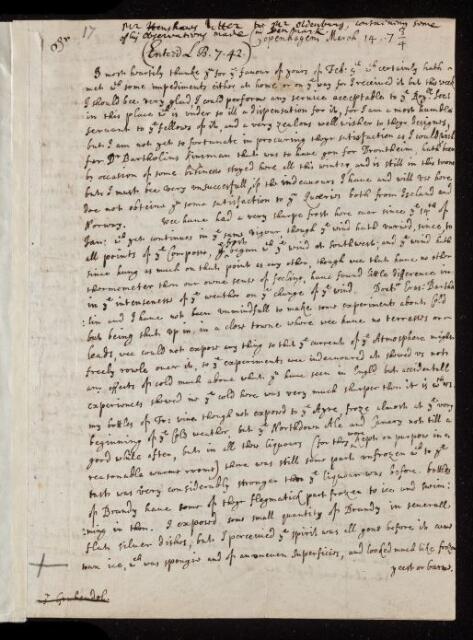 17
Mr Henshaws Letter for Mr Oldenburg, containing some
of his observations made in Denmark
Copenhagen March 14. 7 3/4
(Enterd L B. 7. 42.)
I most heartily thanke you for ye favour of yours of Feb: wch certainly hath
met wth some impediment either at home or on ye way for I received it but this week
I should bee very glad, I could performe any service acceptable to ye Royll Soct
in this place wch is under so ill a dispensation for it, for I am a most humble
servant to ye fellows of it, and a very zealous well wisher to theyr designes,
but I am not yet so fortunate in procuring theyr satisfaction as I could wish
for Dr Bartholins kinsman that was to have gon for Trontheim, hath been
by occasion of some business stayed here all this winter and is still in this towne
but I must bee very unsuccessfull, if the indeavours I have and will use here
doe not obteine you some satisfaction to ye Quæries both from Iseland and
Norway. Wee have had a very sharpe frost here ever since ye 14th of
Jan: wch yet continues in ye same rigour though ye wind hath varied, since, to
all points of ye Compass, it began wth ye wind at Southwest, and ye wind hath
since hung as much on that point as any other, though wee that have no other
thermometer then our owne sense of feeling, have found little difference in
in ye intenseness of ye weather on ye change of ye wind. Doctr Eras: Bartho
:lin and I have not been unmindfull to make some experiments about Cold
but being shut up in, in a close towne where wee have no terrasses or
leads, wee could not expose any thing so that ye current of ye Atmosphere might
freely rowle over it, so ye experiments wee indeavoured at shewed us not
any effects of cold much above what you have seen in Engld but accidentall
experiences shewed us ye cold here was very much sharper then it is wth us.
my bottles of wine though not exposd to ye Ayre, froze almost at ye very
beginning of ye Cold weather, but ye Northdown Ale and not till a
good while after, but in all these liquors (for they kept on purpose in a
reasonable warme roome) there was still some part unfrozen wch to ye
tast was very considerably stronger then ye liquour was before. bottles
of Brandy have some of theyr flegmatick part frozen to ice and swim:
:ming in them. I exposed some small quantity of Brandy in severall
flat silver dishes, but I perceived ye spirit was all gone before it was
turn ice, wch was spongie and of an uneven superficies, and looked much like frozen
yeest or barme.